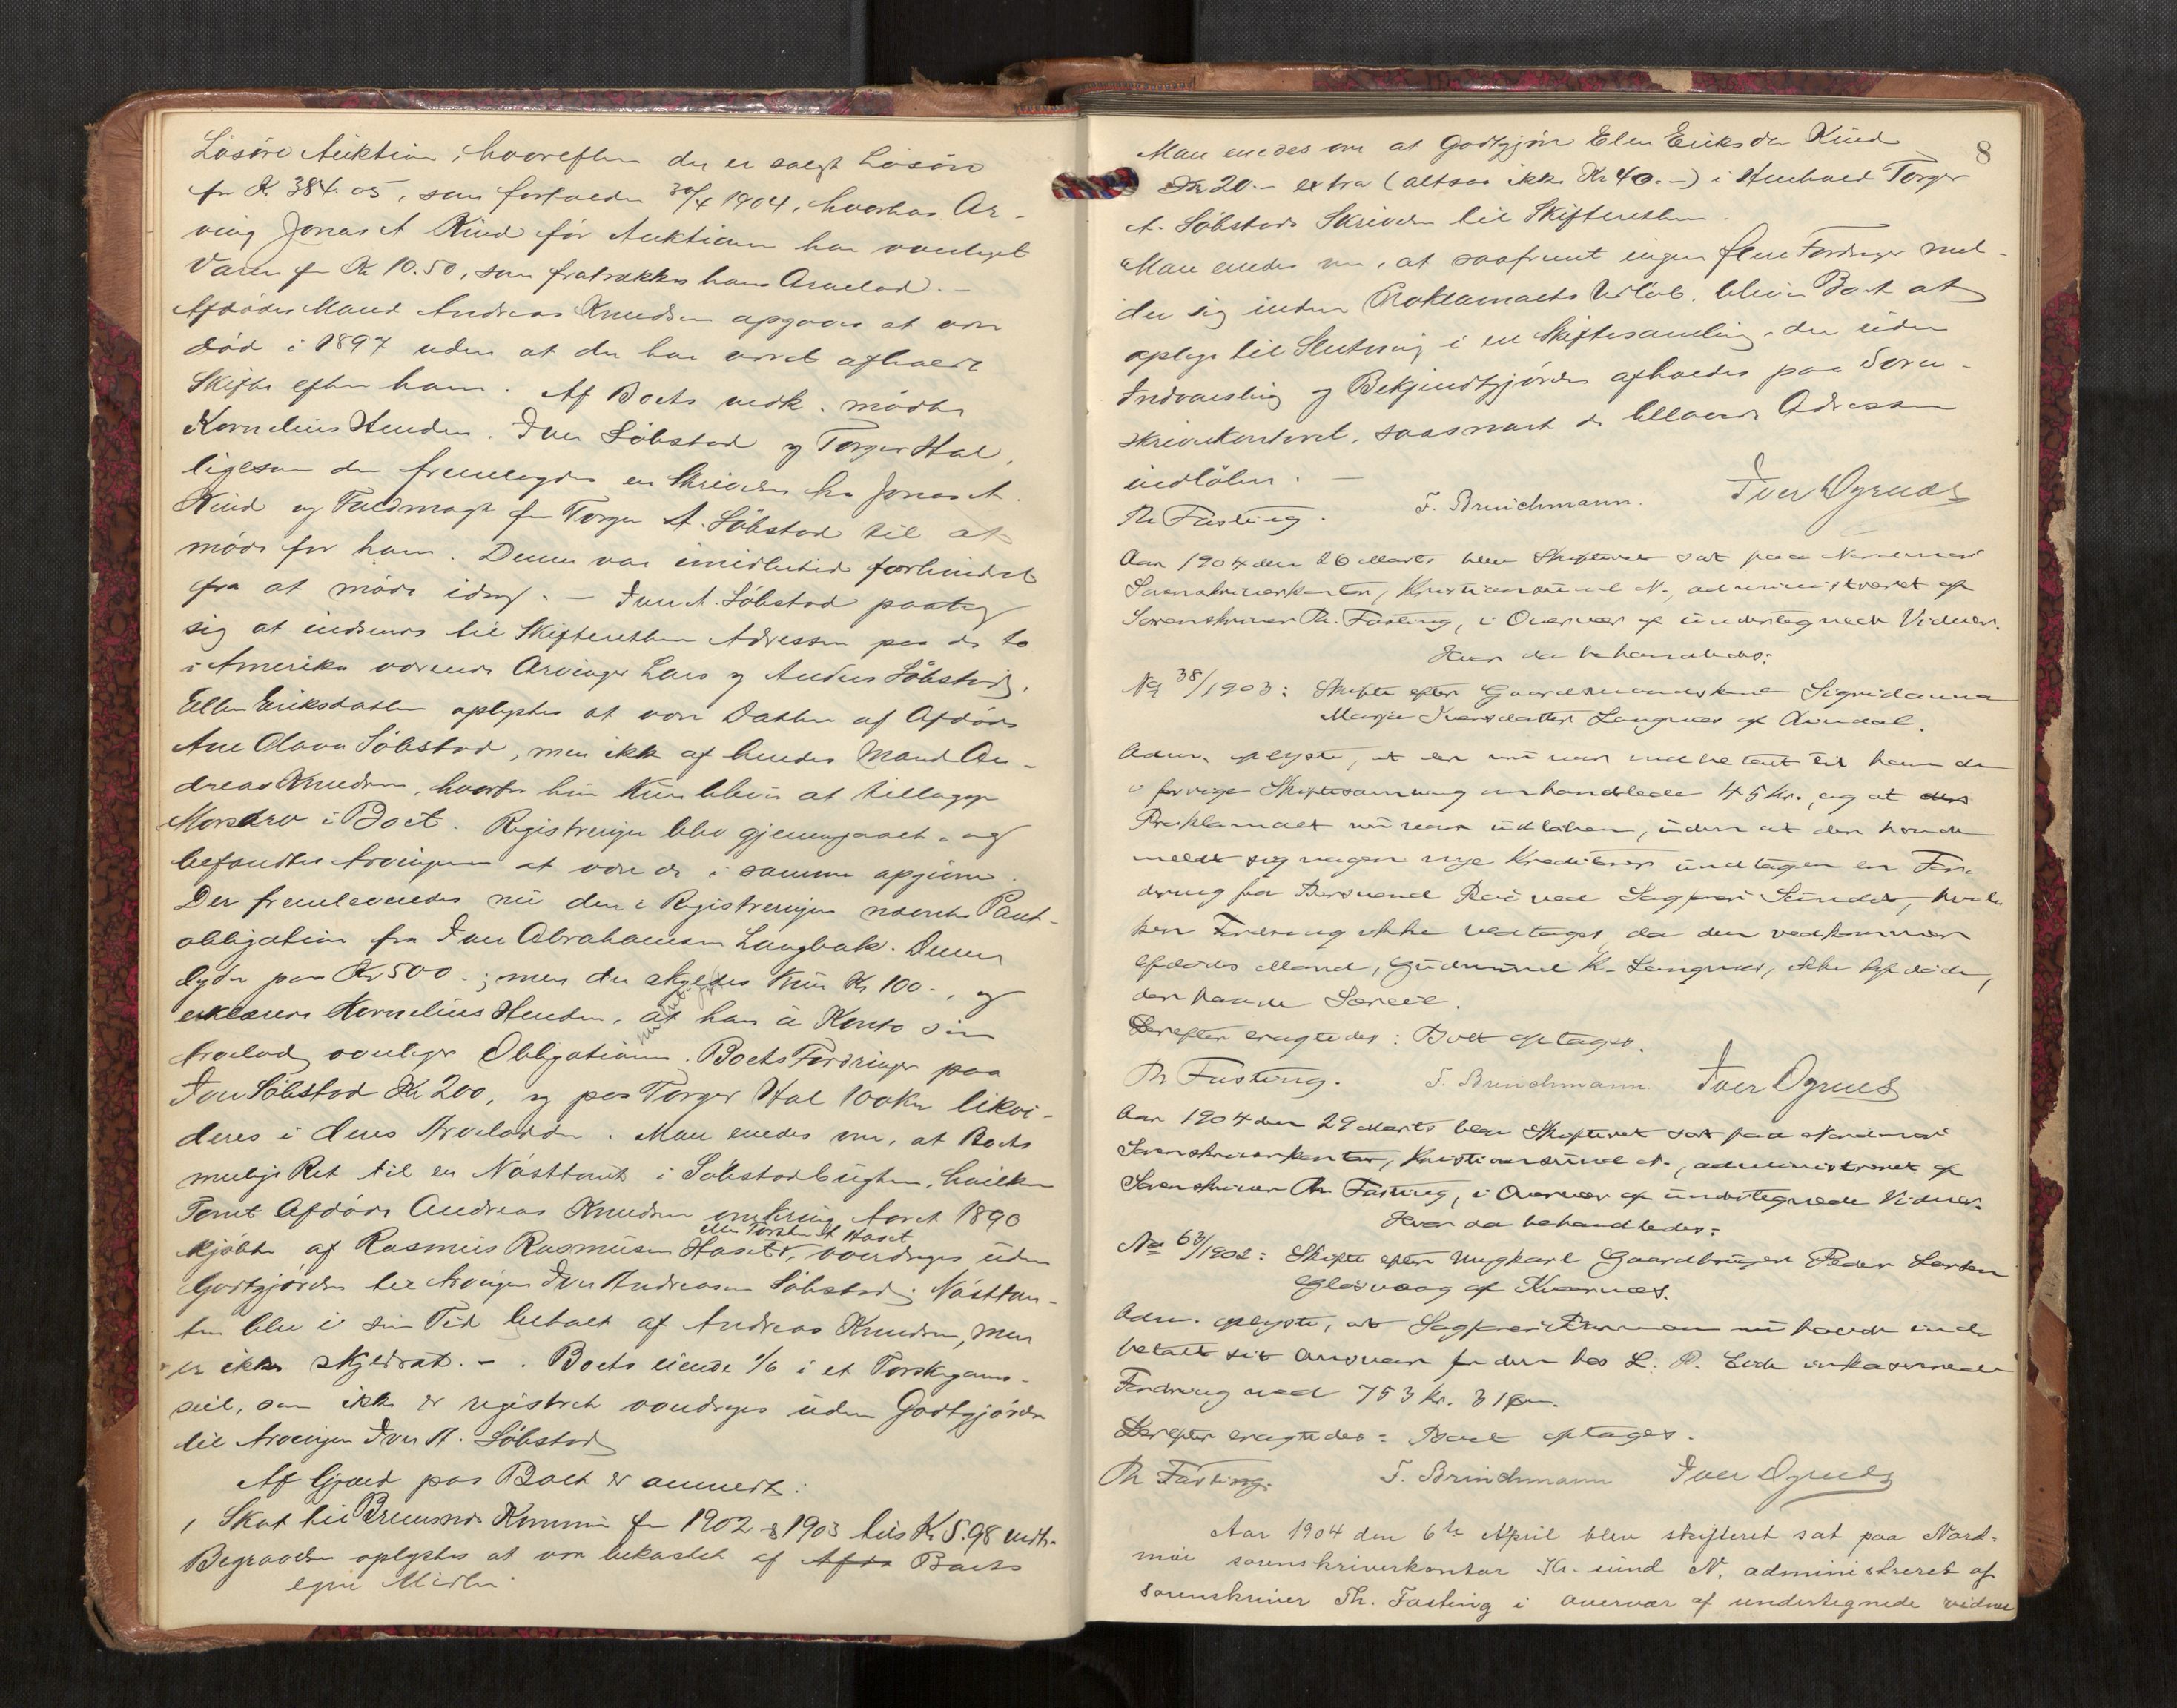 Løsøre Auktion, hvorefter der er solgt Løsøre
for Kr 384.05, som forfalder 30/4 1904, hvorhos Ar-
ving Jonas A Kind før Auktionen har overtaget
Varer for Kr 10.50, som fratrækkes hans Arvelod.-
Afdødes Mand Andreas Knudsen opgaves at være
død i 1897 uden at der har været afholdt
Skifte efter ham. Af Boets vedk. mødte
Kornelius Henden, Iver Løbstad og Torger Hal,
ligesom der fremlagdes en Skrivelse fra Jonas A.
Kind og Fuldmagt fra Torger A. Løbstad til at
møde for ham. Denne var imidlertid forhindret
fra at møde idag. - Iver A. Løbstad paatog
sig at indsende til Skifteretten Adressen paa de to
i Amerika værende Arvinger Lars og Anders Løbstad,
Ellen Eriksdatter oplystes at være Datter af Afdøde
Ane Olava Løbstad, men ikke af hendes Mand An-
dreas Knudsen, hvorfor hun kun bliver at tillægge
Mors Arv i Boet. Registreringen blev gjennemgaaet, og
befandtes Arvingerne at være de i samme opgivne.
Der fremlevertes nu den i Registreringen nævnte Pant-
obligation fra Iver Abrahamsen Langbak. Denne
lyder paa Kr 500.-; men der skyldes kun Kr 100.-, og
erklærer Kornelius Henden, at han à Konto sin
Arvelod overtager Obligationen. Boets Fordringer paa
Iver Løbstad Kr 200, og paa Torger Hal 100 Kr likvi-
deres i deres Arvelodder. Man enedes om, at Boets
mulige Ret til en Nøsttomt i Løbstadbugten, hvilken
Tomt Afdøde Andreas Knudsen omkring Aaret 1890
eller Torsten A Haset
kjøbte af Rasmus Rasmusen Haset, overdrages uden
Godtgjørelse til Arvingen Iver Andreasen Løbstad. Nøsttom-
ten blev i sin Tid betalt af Andreas Knudsen, men
er ikke skjødsat. - . Boets eiende 1/6 i et Torskegarns-
seil, som ikke er registreret overdrages uden Godtgjørelse
til Arvingen Iver A. Løbstad
Af Gjæld paa Boet er anmeldt:
1 Skat til Bremsnes Kommune for 1902 & 1903 tils Kr 5.98 vedt.
Begravelsen oplystes at være bekostet af Boets
egne Midler.
8
Man enedes om at godtgjøre Elen Eriksdr Kind
Kr 20.- extra (altsaa ikke Kr 40.-) i Henhold Torger
A. Løbstads Skrivelse til Skifteretten.
Man enedes om, at saafremt ingen flere Fordringer mel-
der sig inden Proklamaets Udløb, bliver Boet at
oplyse til Slutning i en Skiftesamling, der uden
Indvarsling og Bekjendtgjørelse afholdes paa Soren-
skriverkontoret, saasnart de tillovede Adresser
indløber. -
Th Fasting. F. Brinchmann. Iver Ogrues
Aar 1904 den 26 Marts blev Skifteret sat paa Nordmøre
Sorenskriverkontor, Kristiansund N., administreret af
Sorenskriver Th. Fasting, i Overvær af undertegnede Vidner.
Hvor da behandledes:
No 38/1903: Skifte efter Gaardmandskone Sigridanna
Marja Iversdatter Langnes af Aundal.
Adm. oplyste, at der nu var indbetalt til ham de
i forrige Skiftesamling omhandlede 45 Kr., og at
Proklamaet nu var udløben, uden at der havde
meldt sig nogen nye Kreditorer undtagen en For-
dring fra ved Sagfører Sunde, hvil-
ken Fordring ikke vedtages, da den vedkommer
Afdødes Mand, Gudmund K. Langnes, ikke Afdøde,
der havde Særeie.
Derefter eragtedes: Boet optages.
Th Fasting. F. Brinchmann. Iver Ogrues
Aar 1904 den 29 Marts blev Skifteret sat paa Nordmøre
Sorenskriverkontor, Kristiansund N., administreret af
Sorenskriver Th Fasting, i Overvær af undertegnede Vidner.
Hvor da behandledes:
No 63/1902: Skifte efter Ungkarl Gaardbruger Peder Larsen
Glasvaag af Kvernes.
Adm. oplyste, at Sagfører nu havde ind-
betalt sit Ansvar for den hos L. P. Eide inkasserede
Fordring med 753 Kr. 31 Øre.
Derefter eragtedes: Boet optages.
Th Fasting. F. Brinchmann Iver Ogrues
Aar 1904 den 6te April blev skifteret sat paa Nord-
møre sorenskriverkontor Kr.sund N. administreret af
sorenskriver Th. Fasting i overvær af undertegnede vidner